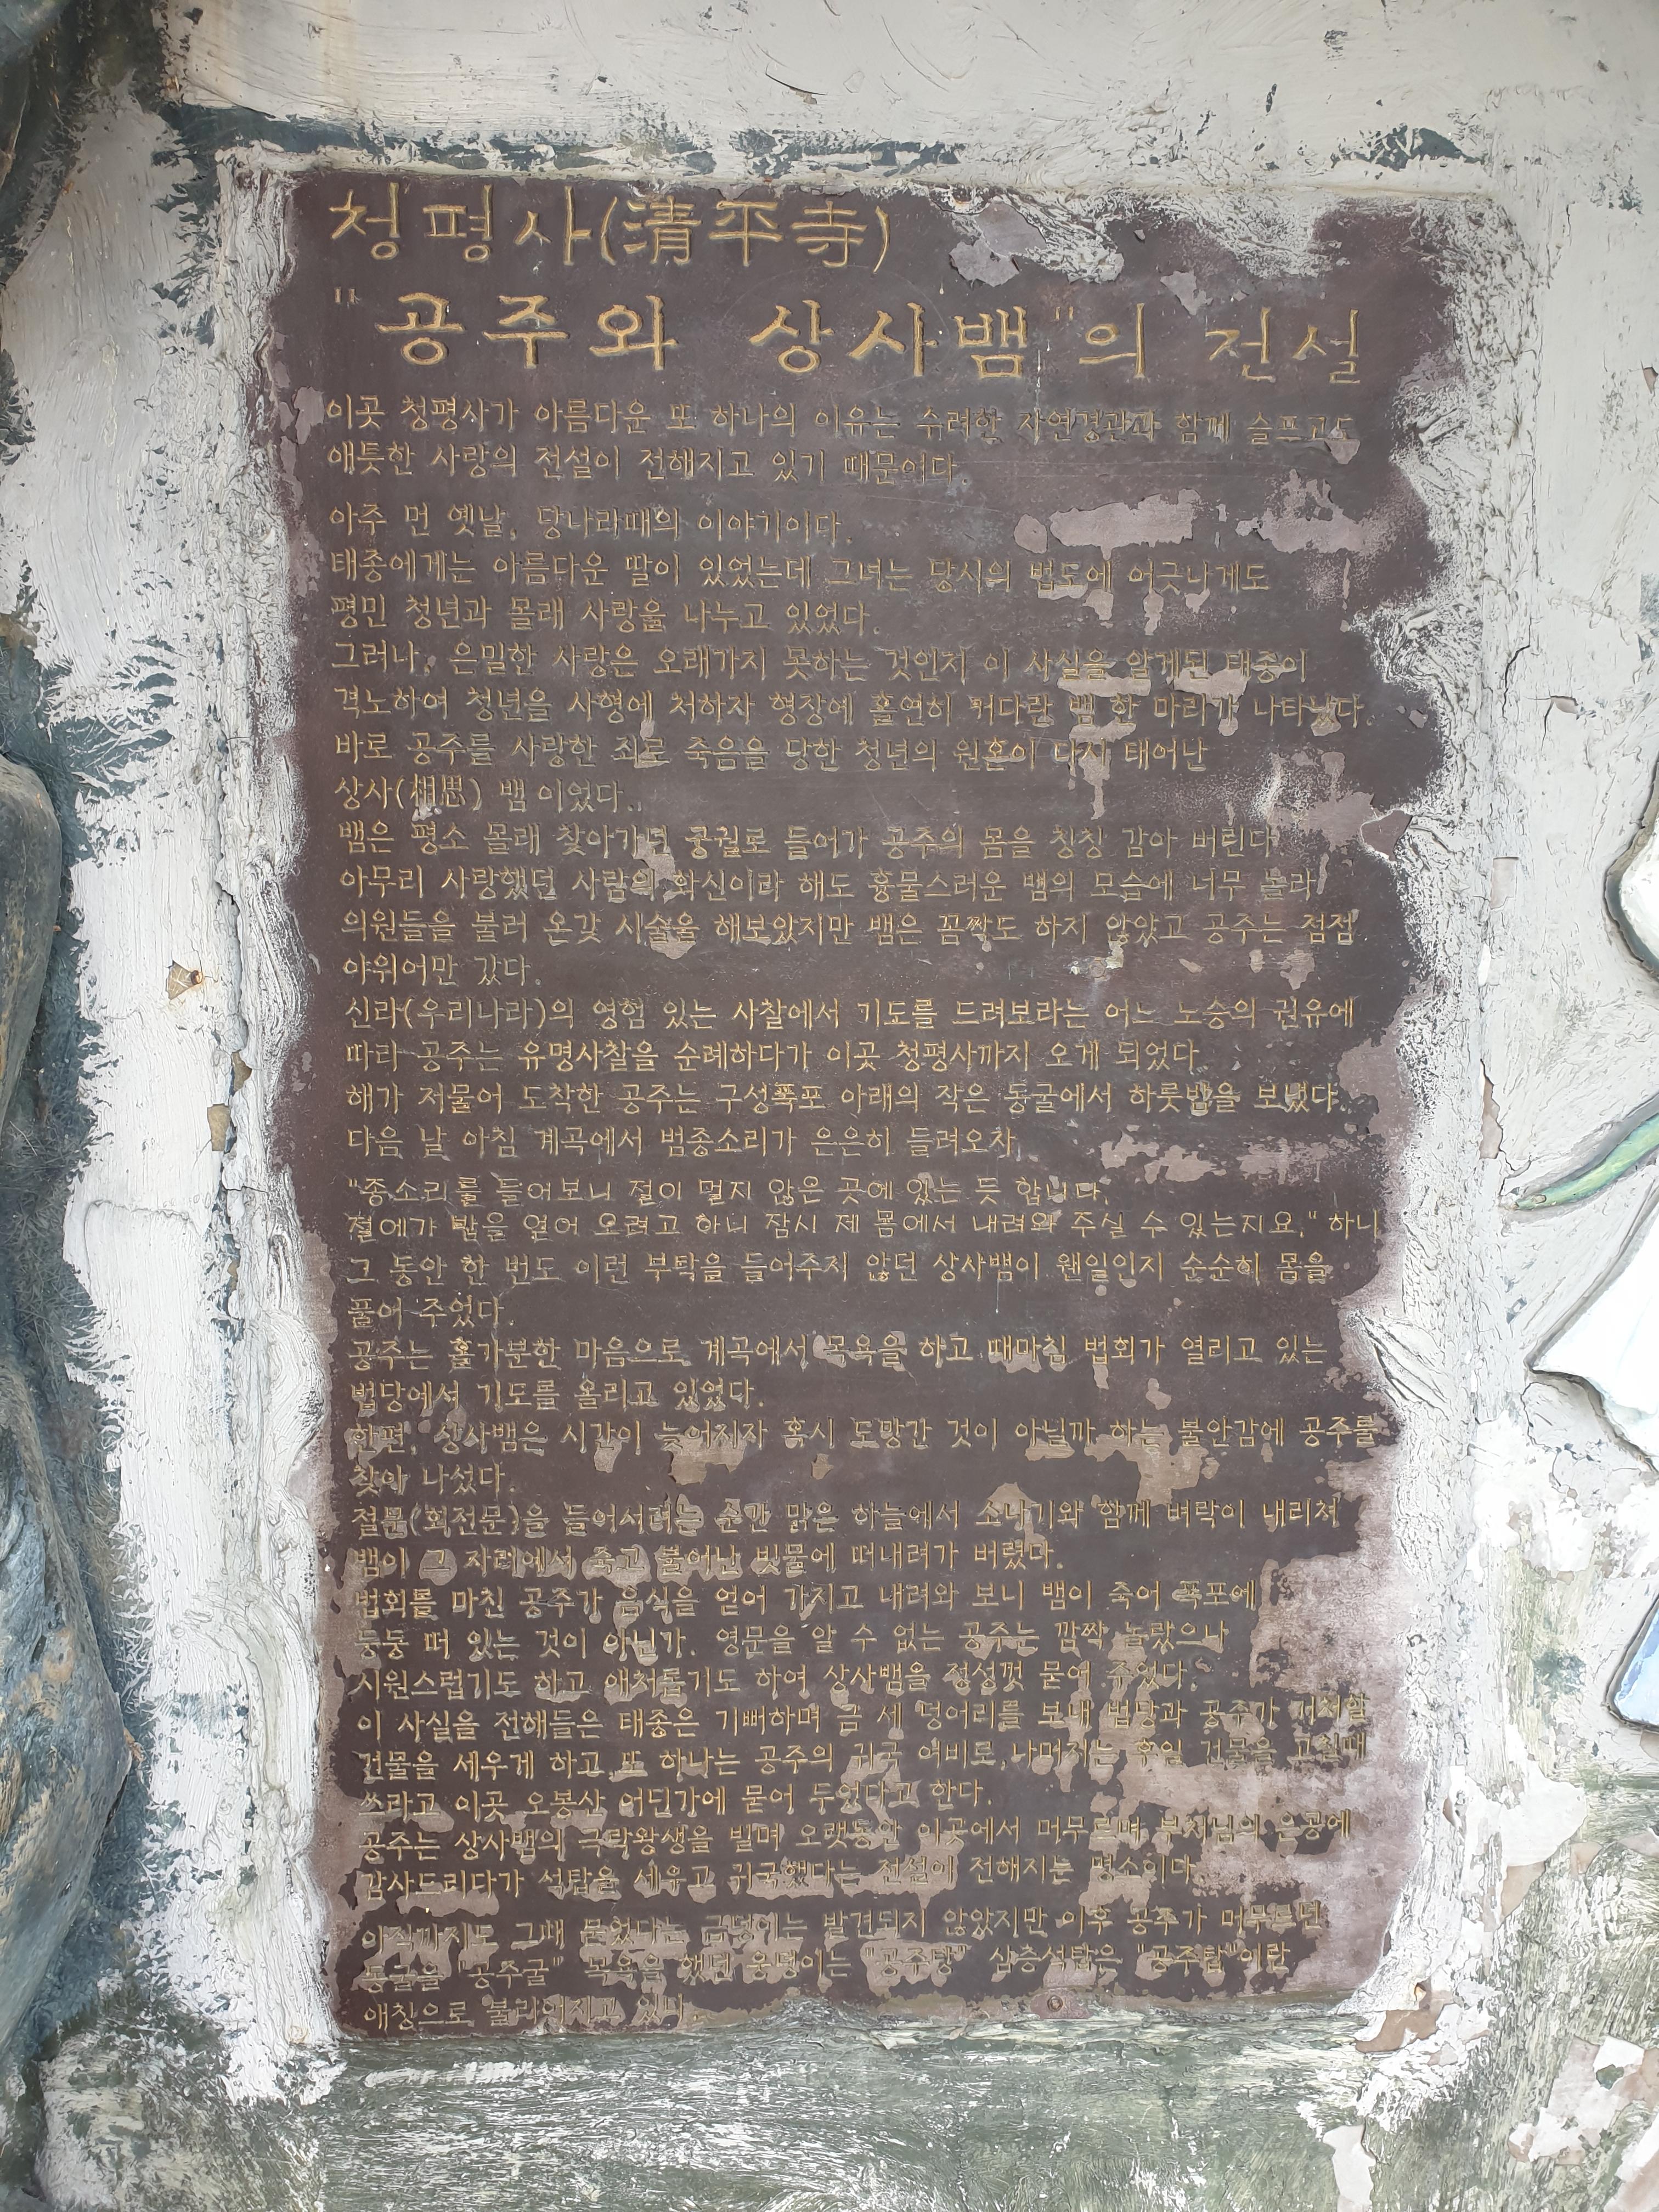 청평사(清平寺)
"공주와 상사뱀"의 전설
이곳 청평사가 아름다운 또 하나의 이유는 수려한 자연경관과 함께 슬프고도
애틋한 사랑의 전설이 전해지고 있기 때문이다.
아주 먼 옛날, 당나라때의 이야기이다.
태종에게는 아름다운 딸이 있었는데 그녀는 당시의 법도에 어긋나게도
평민 청년과 몰래 사랑을 나누고 있었다.
그러나, 은밀한 사랑은 오래가지 못하는 것인지 이 사실을 알게된 태종이
격노하여 청년을 사형에 처하자 형장에 홀연히 커다랑 뱀 한 마리가 나타났다.
바로 공주를 사랑한 죄로 죽음을 당한 청년의 원혼이 다시 태어난
상사(相思) 뱀 이었다.
뱀은 평소 몰래 찾아가던 궁궐로 들어가 공주의 몸을 칭칭 감아 버린다
아무리 사랑했던 사람의 화신이라 해도 흉물스러운 뱀의 모습에 너무 놀라
의원들을 불러 온갖 시술을 해보았지만 뱀은 꼼짝도 하지 않았고 공주는 점점
야위어만 갔다.
신라(우리나라)의 영험 있는 사찰에서 기도를 드려보라는 어느 노승의 권유에
따라 공주는 유명사찰을 순례하다가 이곳 청평사까지 오게 되었다.
해가 저물어 도착한 공주는 구성폭포 아래의 작은 동굴에서 하룻밤을 보냈다.
다음 날 아침 계곡에서 범종소리가 은은히 들려오자
"종소리를 들어보니 절이 멀지 않은 곳에 있는 듯 합니다.
절에가 밥을 얻어 오려고 하니 잠시 제 몸에서 내려와 주실 수 있는지요." 하니
그 동안 한 번도 이런 부탁을 들어주지 않던 상사뱀이 웬일인지 순순히 몸을
풀어 주었다.
공주는 홀가분한 마음으로 계곡에서 목욕을 하고 때마침 법회가 열리고 있는
법당에서 기도를 올리고 있었다.
한편, 상사뱀은 시간이 늦어지자 혹시 도망간 것이 아닐까 하는 불안감에 공주를
찾아 나섰다.
절문(회전문)을 들어서려는 순간 맑은 하늘에서 소나기와 함께 벼락이 내리쳐
뱀이 그 자리에서 죽고 불어난 빗물에 떠내려가 버렸다.
법회를 마친 공주가 음식을 얻어 가지고 내려와 보니 뱀이 죽어 폭포에
둥둥 떠 있는 것이 아닌가. 영문을 알 수 없는 공주는 깜짝 놀랐으나
시원스럽기도 하고 애처롭기도 하여 상사뱀을 정성껏 묻어 주었다.
이 사실을 전해들은 태종은 기뻐하며 금 세 덩어리를 보내 법당과 공주가 거처할
건물을 세우게 하고 또 하나는 공주의 귀국 여비로, 나머지는 후일 건물을 고칠때
쓰라고 이곳 오봉산 어딘가에 묻어 두었다고 한다.
공주는 상사뱀의 극락왕생을 빌며 오랫동안 이곳에서 머무르며 부처님의 은공에
감사드리다가 석탑을 세우고 귀국했다는 전설이 전해지는 명소이다.
아직까지도 그때 묻었다는 금덩이는 발견되지 않았지만 이후 공주가 머무르던
동굴을 "공주굴" 목욕을 했던 웅덩이는 "공주탕" 삼층석탑은 "공주탑"이란
애칭으로 불리어지고 있다.